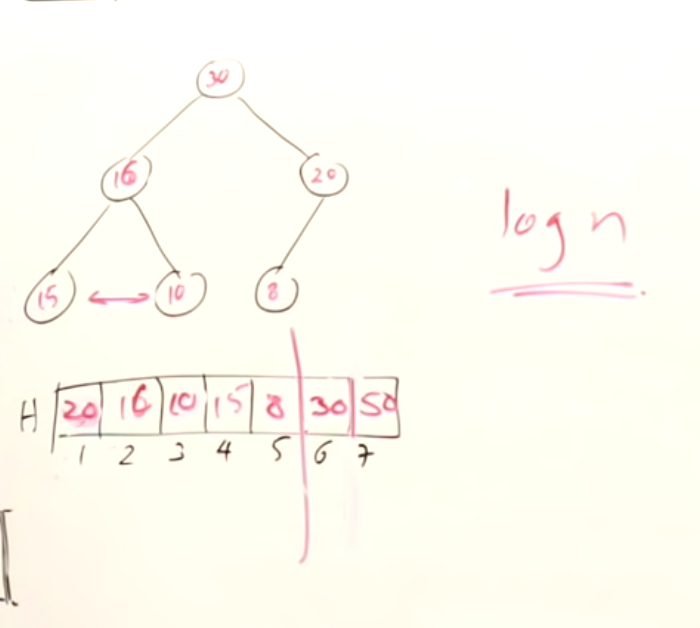 30
16 20
15 10 8
log n
H 20 16 10 15 8 30 50
1 2 3 4 5 6 7